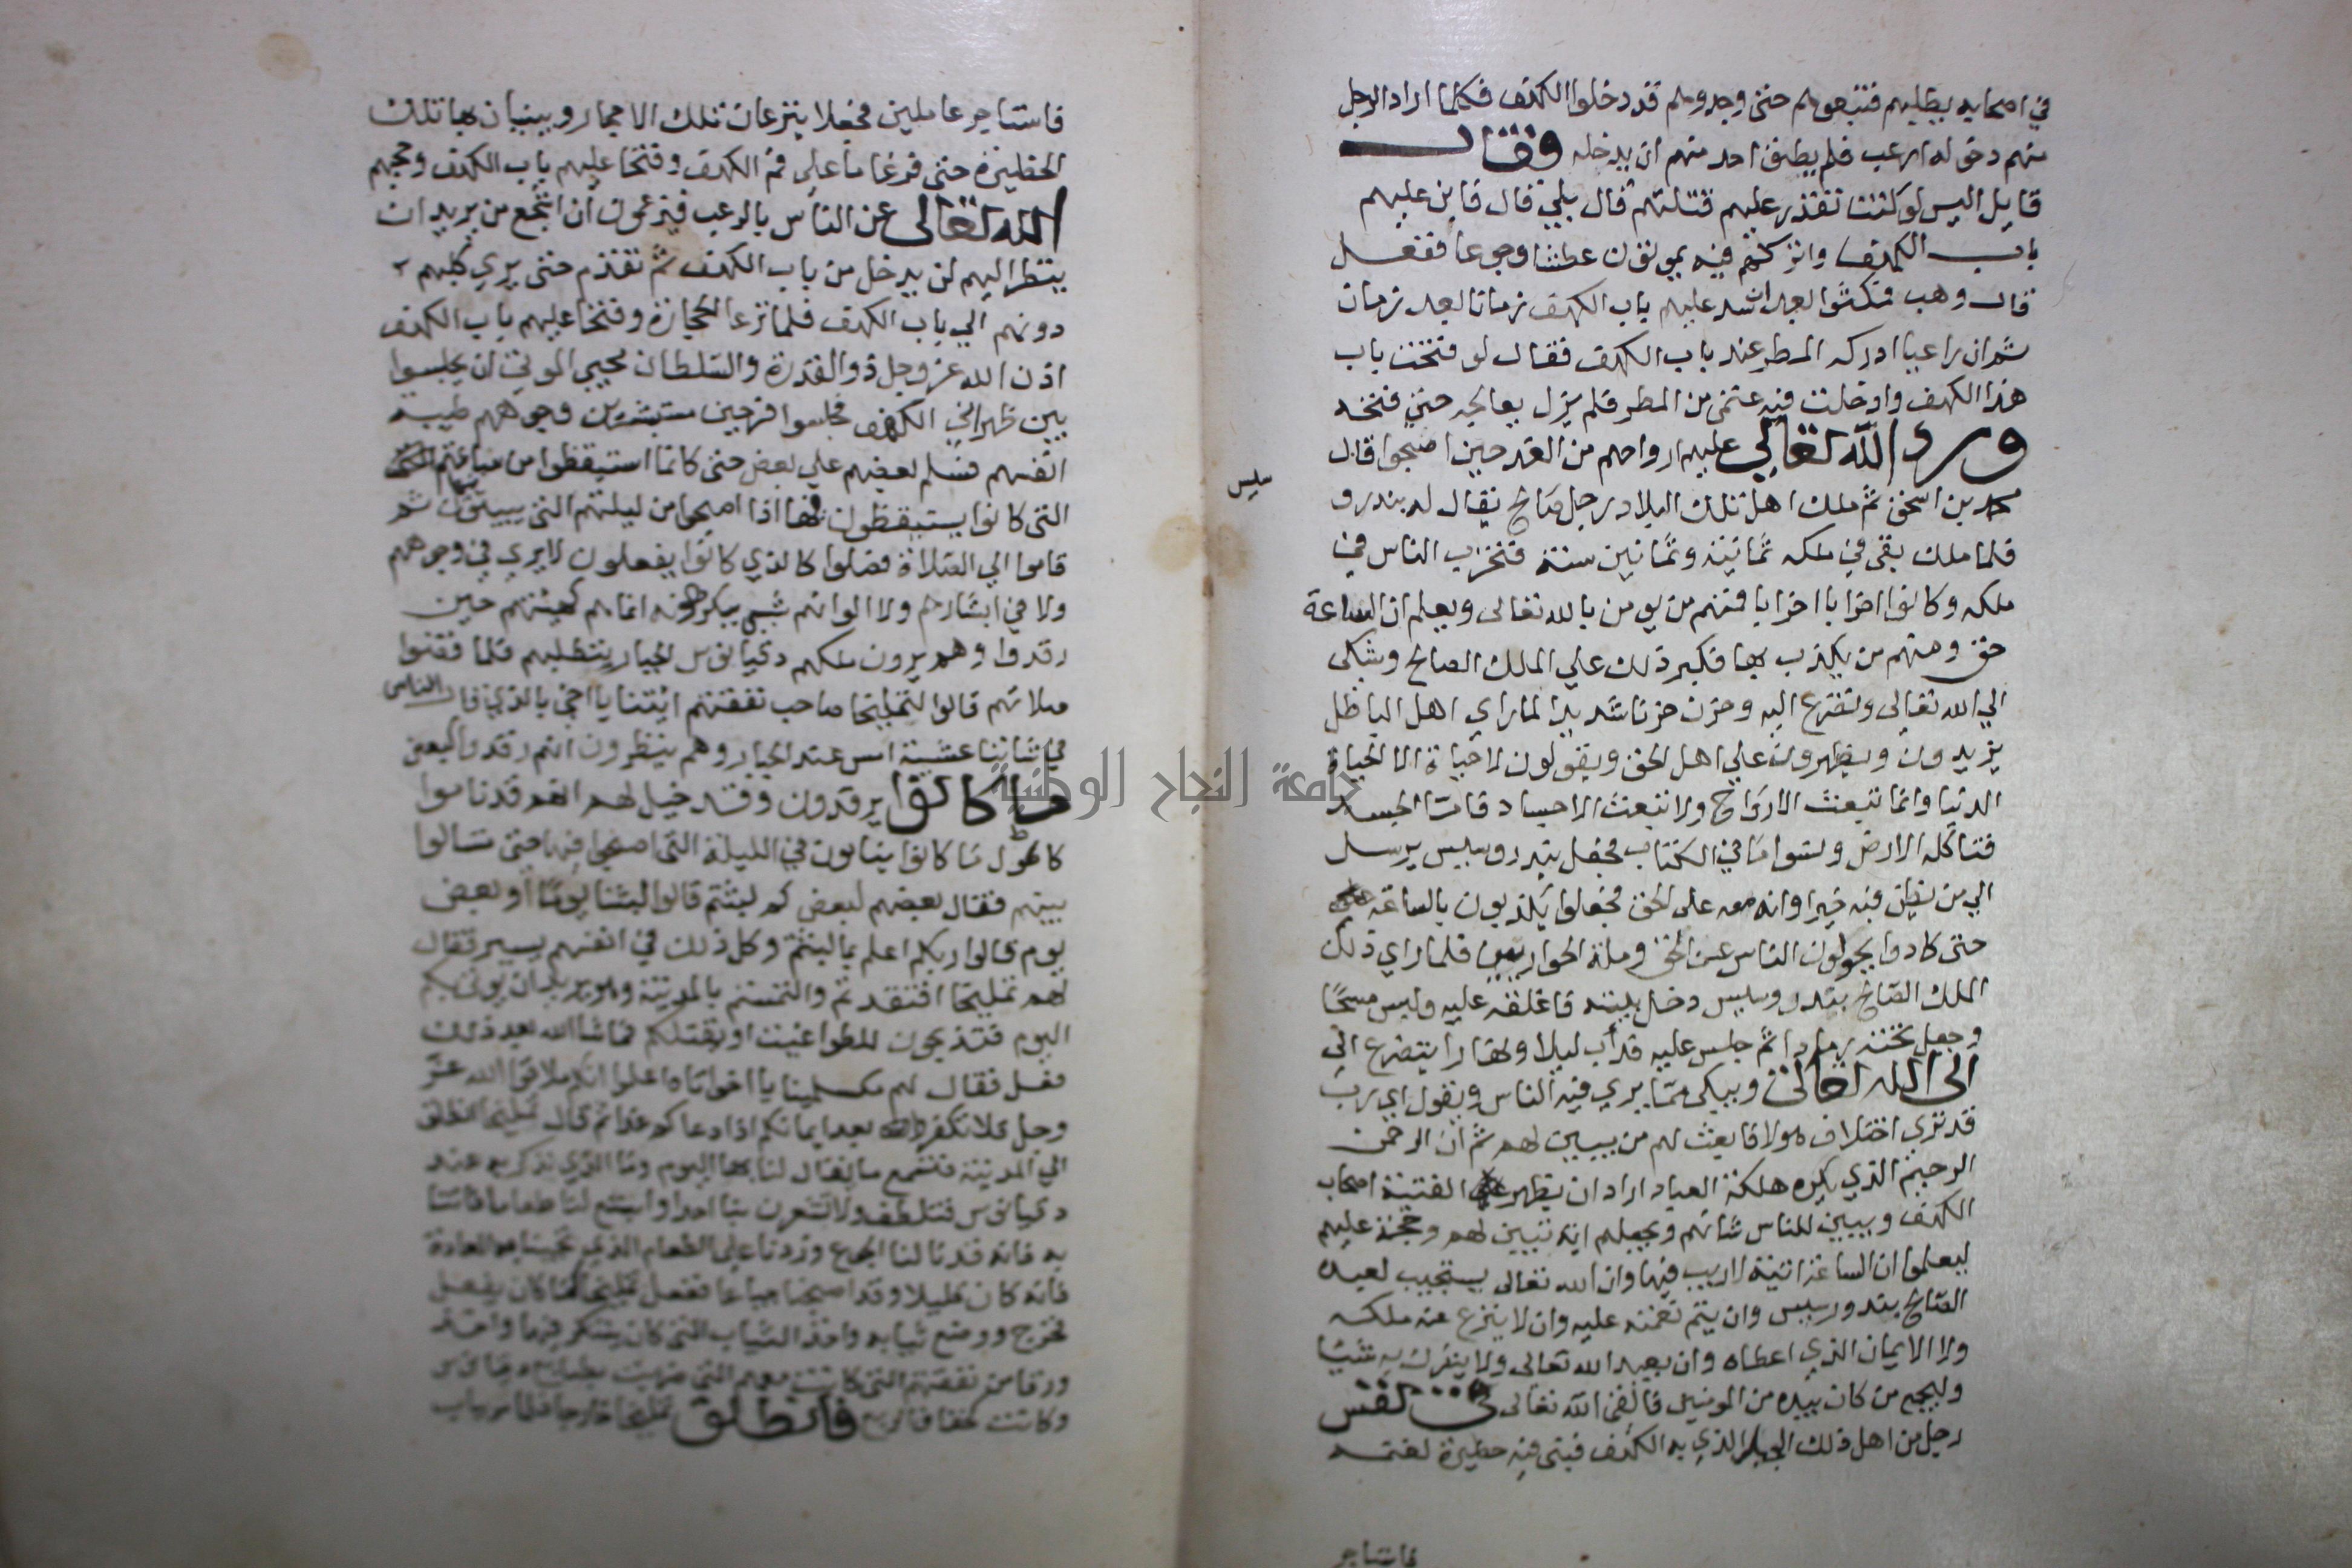 في اصحابه يطلبهم فتبعوهم حتى وجدوهم قد دخلوا الكهف فكلما اراد الرجل
منهم دخوله ارعب فلم يطق احد منهم ان يدخله فقال
قايل اليس لو كنت تقدر عليهم قتلتهم قال بلي قال فابن عليهم
باب الكهف واتركهم فيه يموتون عطشا وجوعا ففعل
قال وهب فمكثوا بعد ان سد عليهم باب الكهف زمانا بعد زمان
ثم ان راعيا ادركه المطر عند باب الكهف فقال لو فتحت باب
هذا الكهف وادخلت فيه غنمي من المطر فلم يزل يعالجه حتى فتحه
ورد الله تعالي عليهم ارواحهم من الغد حين اصبحوا قال
محمد بن اسحق ثم ملك اهل تلك البلاد رجل صالح يقال له بندرو
سليس
فلما ملك بقي في ملكه ثمانية وثمانين سنة فتحزب الناس في
ملكه وكانوا احزابا احزابا فمنهم من يومن بالله تعالى ويعلم ان الساعة
حق ومنهم من يكذب بها فكبر ذلك علي الملك الصالح وشكى
الي الله تعالي وتضرع اليه وحزن حزنا شديدا لما راي اهل الباطل
يزيدون ويظهرون علي اهل الحق ويقولون لا حياة الا الحياة
الدنيا وانما تبعث الارواح ولا تبعث الاجساد فاما الجسد
فتاكله الارض ونسوا ما في الكتاب فجعل بندروسليس يرسل
الي من يظن فيه خيرا وانه معه على الحق فجعلوا يكذبون بالساعة
حتى كادوا يحولون الناس عن الحق وملة الحواريين فلما راي ذلك
الملك الصالح بندروسليس دخل بيته فاغلقه عليه ولبس مسحا
وجعل تحته رمادا ثم جلس عليه فدأب ليلا ونهارا يتضرع الي
الى الله تعالى ويبكى مما يري فيه الناس ويقول اي رب
قد تري اختلاف هولا فابعث لهم من يبين لهم ثم ان الرحمن
الرحيم الذي يكره هلكة العباد اراد ان يظهر الفتية اصحاب
الكهف ويبين للناس شانهم ويجعلهم اية تبين لهم وحجة عليهم
ليعلموا ان الساعة اتية لا ريب فيها وان الله تعالى يستجيب لعبده
الصالح بندورسليس وان يتم نعمته عليه وان لا ينزع عنه ملكه
ولا الايمان الذي اعطاه وان يعبد الله تعالى ولا يشرك به شيئا
وليجمع من كان بيده من المومنين فالقى الله تعالى في نفس
رجل من اهل ذلك الجبل الذي به الكهف فبنى فيه حظيرة لغنمه
فاستاجر
فاستاجر عاملين فجعلا ينزعان تلك الاحجار ويبنيان بها تلك
الحظيرة حتى فرغا ما على فم الكهف وفتحا عليهم باب الكهف وحجبهم
الله تعالى عن الناس بالرعب فيزعمون أن اشجع من يريد ان
ينظر اليهم ان يدخل من باب الكهف ثم تقدم حتى يري كلبهم
دونهم الي باب الكهف فلما نزعا الحجارة وفتحا عليهم باب الكهف
اذن الله عز وجل ذو القدرة والسلطان محيي الموتى ان يجلسوا
بين ظهراني الكهف فجلسوا فرحين مستبشرين وجوههم طيبه
انفسهم فسلم بعضهم علي بعض حتى كانما استيقظوا من ساعتهم
التى كانوا يستيقظون فيها اذا اصبحوا من ليلتهم التى يبيتون ثم
قاموا الي الصلاة فصلوا كالذي كانوا يفعلون لا يري في وجوههم
ولا في ابشارهم ولا الوانهم شيي يكرهونه انما هم كهيئتهم حين
رقدوا وهم يرون ملكهم دقيانوس الجبار يتطلبهم فلما قضوا
صلاتهم قالوا لتمليخا صاحب نفقتهم ايتنا يا اخي بالذي قال الناس
في شاننا عشية امس عند الجبار وهم يظنون انهم رقدوا كبعض
ما كانوا يرقدون وقد خيل لهم انهم قد ناموا
كاطول ما كانوا ينامون في الليلة التى اصبحوا فيها حتى تسالوا
بينهم فقال بعضهم لبعض كم لبثتم قالوا لبثنا يوما أو بعض
يوم قالوا ربكم اعلم بما لبثتم وكل ذلك في انفسهم يسير فقال
لهم تمليخا افتقدتم والتمستم بالمدينة وهو يريد ان يوتى بكم
اليوم فتذبحون للطواغيت او يقتلكم فما شا الله بعد ذلك
فعل فقال لهم مكسلمينا يا اخوتاه اعلموا انكم ملاقوا الله عز
وجل فلا تكفروا بعد ايمانكم اذا دعاكم غدا ثم قال لتمليخا انطلق
الي المدينة فتسمع ما يقال لنا بها اليوم وما الذي نذكر به عند
دقيانوس فتلطف ولا تشعرن بنا احدا وابتع لنا طعاما فاتنا
به فانه قد نالنا الجوع وزدنا علي الطعام الذي
فانه كان قليلا وقد اصبحنا جياعا ففعل تمليخا كما كان يفعل
فخرج ووضع ثيابه واخذ الثياب التى كان يتنكر فيها واخذ
ورقا من نفقتهم التى كانت معهم التى ضربت بطابع دقيانوس
وكانت كخفاف الربع فانطلق تمليخا خارجا فلما مر بباب
جامعة النجاح الوطنية